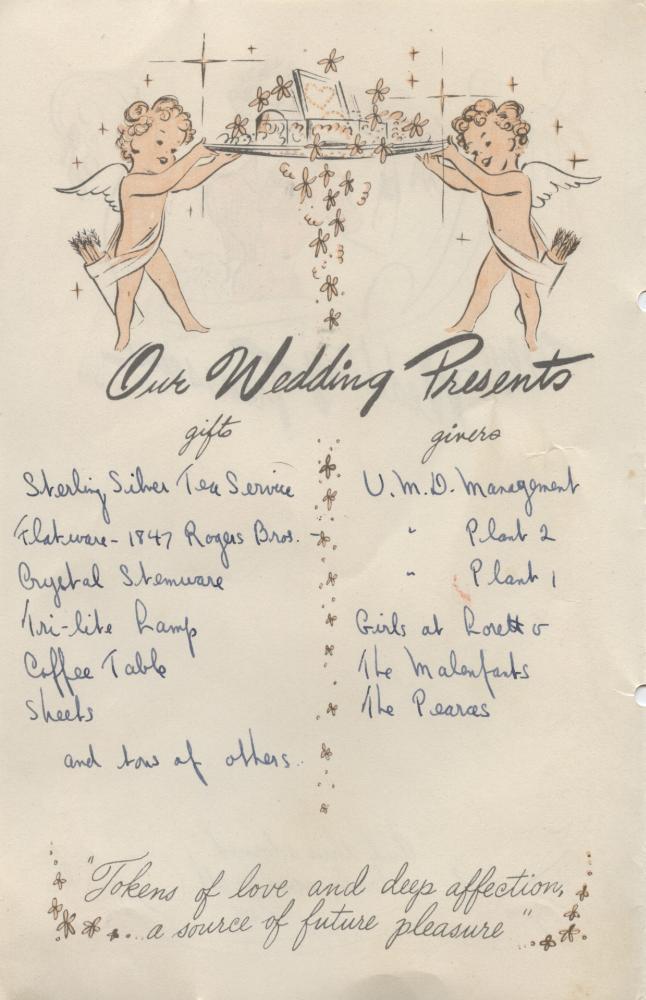 Our Wedding Presents
gifts givers
Sterling Silver Tea Service U.M.D. Management
Flatware - 1847 Rogers Bros. - " Plant 2
Crystal Stemware " Plant 1
Tri-lite Lamp Girls at Loretto
Coffee Table The Malenfants
Sheets The Pearces
and tons of others..
"Tokens of love and deep affection,
...a source of future pleasure"